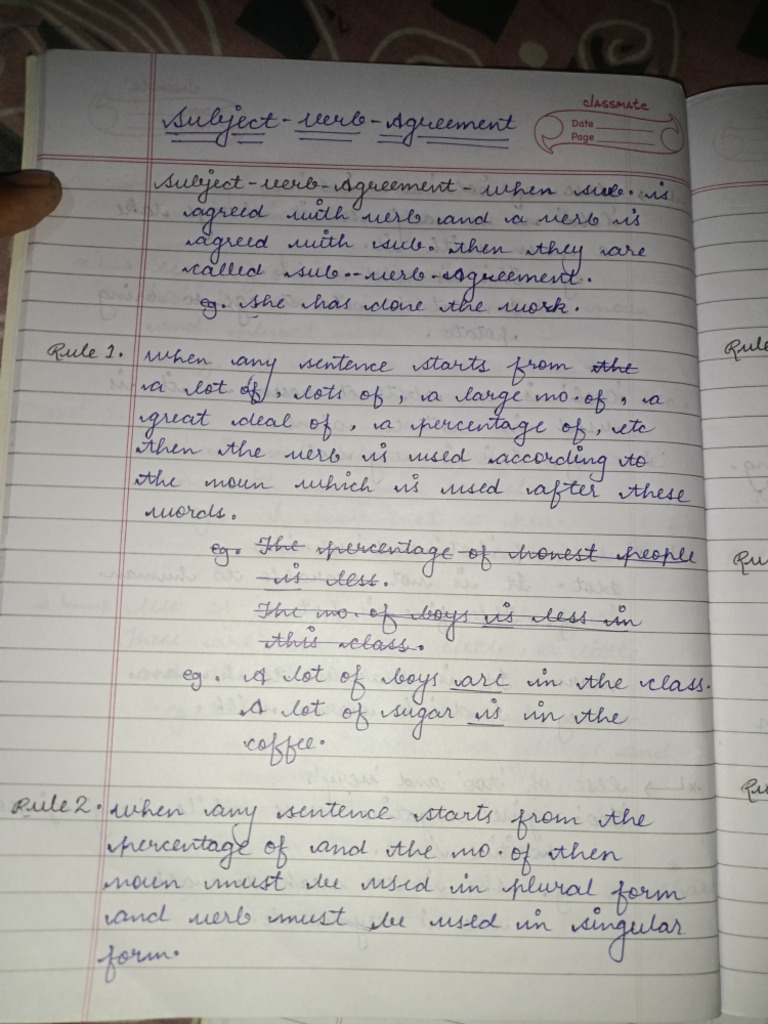 classmate
Date
Page
Subject-verb-Agreement
Subject-verb-Agreement - when sub. is
agreed with verb and a verb is
agreed with sub. then they are
called sub.-verb-Agreement.
eg. She has done the work.
Rule 1. when any sentence starts from the
a lot of, lots of, a large no. of, a
great deal of, a percentage of, etc
then the verb is used according to
the noun which is used after these
words.
eg. The percentage of honest people
is less.
The no. of boys is less in
this class.
eg. A lot of boys are in the class.
A lot of sugar is in the
coffee.
Rule 2. when any sentence starts from the
percentage of and the no. of then
noun must be used in plural form
and verb must be used in singular
form.
Rule
Ru
Ru